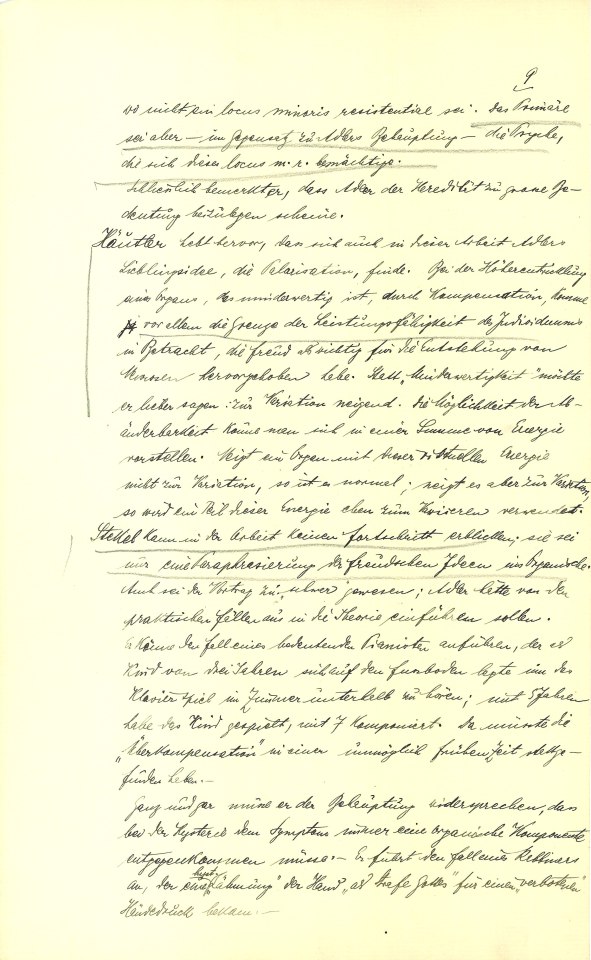 9
wo nicht ein locus minoris resistentiae sei. Das Primäre
sei aber – im Gegensatz zu Adlers Behauptung – die Psyche,
die sich dieses locus m. r. bemächtige.
Schliesslich bemerkt er, dass Adler der Heredität zu grosse Be-
deutung beizulegen scheine.
Häutler hebt hervor, dass sich auch in dieser Arbeit Adlers
Lieblingsidee, die Polarisation, finde. Bei der Höherentwicklung
eines Organs, das minderwertig ist, durch Kompensation, komme
vor allem die Grenze der Leistungsfähigkeit des Individuums
in Betracht, die Freud als wichtig für die Entstehung von
Neurosen hervorgehoben habe. Statt „Minderwertigkeit" möchte
er lieber sagen: zur Variation neigend. Die Möglichkeit der Ab-
änderbarkeit könne man sich in einer Summe von Energie
vorstellen. Neigt ein Organ mit dieser virtuellen Energie
nicht zur Variation, so ist es normal; neigt es aber zur Variation,
so wird ein Teil dieser Energie eben zum Variieren verwendet.
Stekel kann in der Arbeit keinen Fortschritt erblicken; sie sei
nur eine Paraphrasierung der Freudschen Ideen ins Organische.
Auch sei der Vortrag zu „schwer" gewesen; Adler hätte von den
praktischen Fällen aus in die Theorie einführen sollen.
Er könne den Fall eines bedeutenden Pianisten anführen, der als
Kind von drei Jahren sich auf den Fussboden legte um das
Klavierspiel im Zimmer unterhalb zu hören; mit 5 Jahren
habe das Kind gespielt, mit 7 komponiert. Da müsste die
„Überkompensation" in einer unmöglich frühen Zeit stattge-
funden haben.–
Ganz und gar müsse er der Behauptung widersprechen, dass
bei der Hysterie dem Symptom immer eine organische Komponente
entgegenkommen müsse.– Er führt den Fall eines Kellners
an, der eine hyst. Lähmung der Hand „als Strafe Gottes" für einen „verbotenen"
Händedruck bekam.–